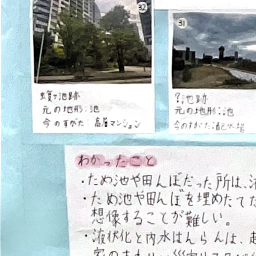 32
蟇ケ池跡
元の地形：池
今のすがた：高層マンション
31
池跡
元の地形：池
今のすがた：
わかったこと
・ため池や田んぼだった所は、
・ため池や田んぼを埋めたてた
想像することが難しい。
・液状化と内水はんらんは、起